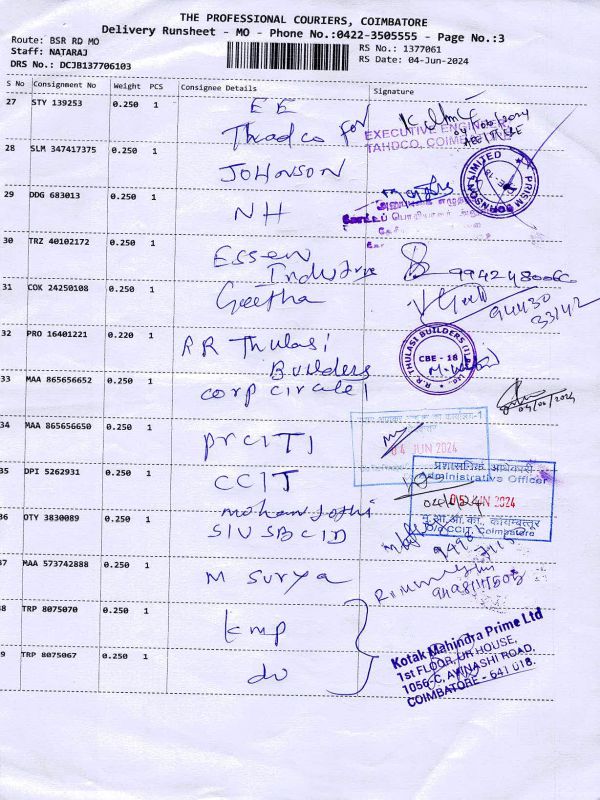 THE PROFESSIONAL COURIERS, COIMBATORE
Delivery Runsheet - MO - Phone No.:0422-3505555 - Page No.:3
Route: BSR RD MO
Staff: NATARAJ
DRS No.: DCJB137706103
RS No.: 1377061
RS Date: 04-Jun-2024
S No Consignment No Weight PCS Consignee Details Signature
27 STY 139253 0.250 1 EE
Thadco for
EXECUTIVE ENGINEER
TAHDCO, COIMBATORE
28 SLM 347417375 0.250 1 JOHNSON
PRISM JOHNSON LIMITED
29 DDG 683013 0.250 1 NH
30 TRZ 40102172 0.250 1 Essen
Industrye
31 COK 24250108 0.250 1 Geetha
V Geeth
94430
33142
32 PRO 16401221 0.220 1 RR Thulasi
Builders
R.R. THULASI BUILDERS (I)
CBE - 18
33 MAA 865656652 0.250 1 corp circle 1
04/06/2024
34 MAA 865656650 0.250 1 PRCIT 1
04 JUN 2024
35 DPI 5262931 0.250 1 CCIT
प्रशासनिक अधिकारी
Administrative Officer
JUN 2024
O/o CCIT, Coimbatore
36 OTY 3830089 0.250 1 mohan Jothi
SIU SB CID
9498
37 MAA 573742888 0.250 1 M Surya
38 TRP 8075070 0.250 1 kmp
39 TRP 8075067 0.250 1 do
Kotak Mahindra Prime Ltd
1st FLOOR, UR HOUSE,
1056-C, AVINASHI ROAD,
COIMBATORE - 641 018.